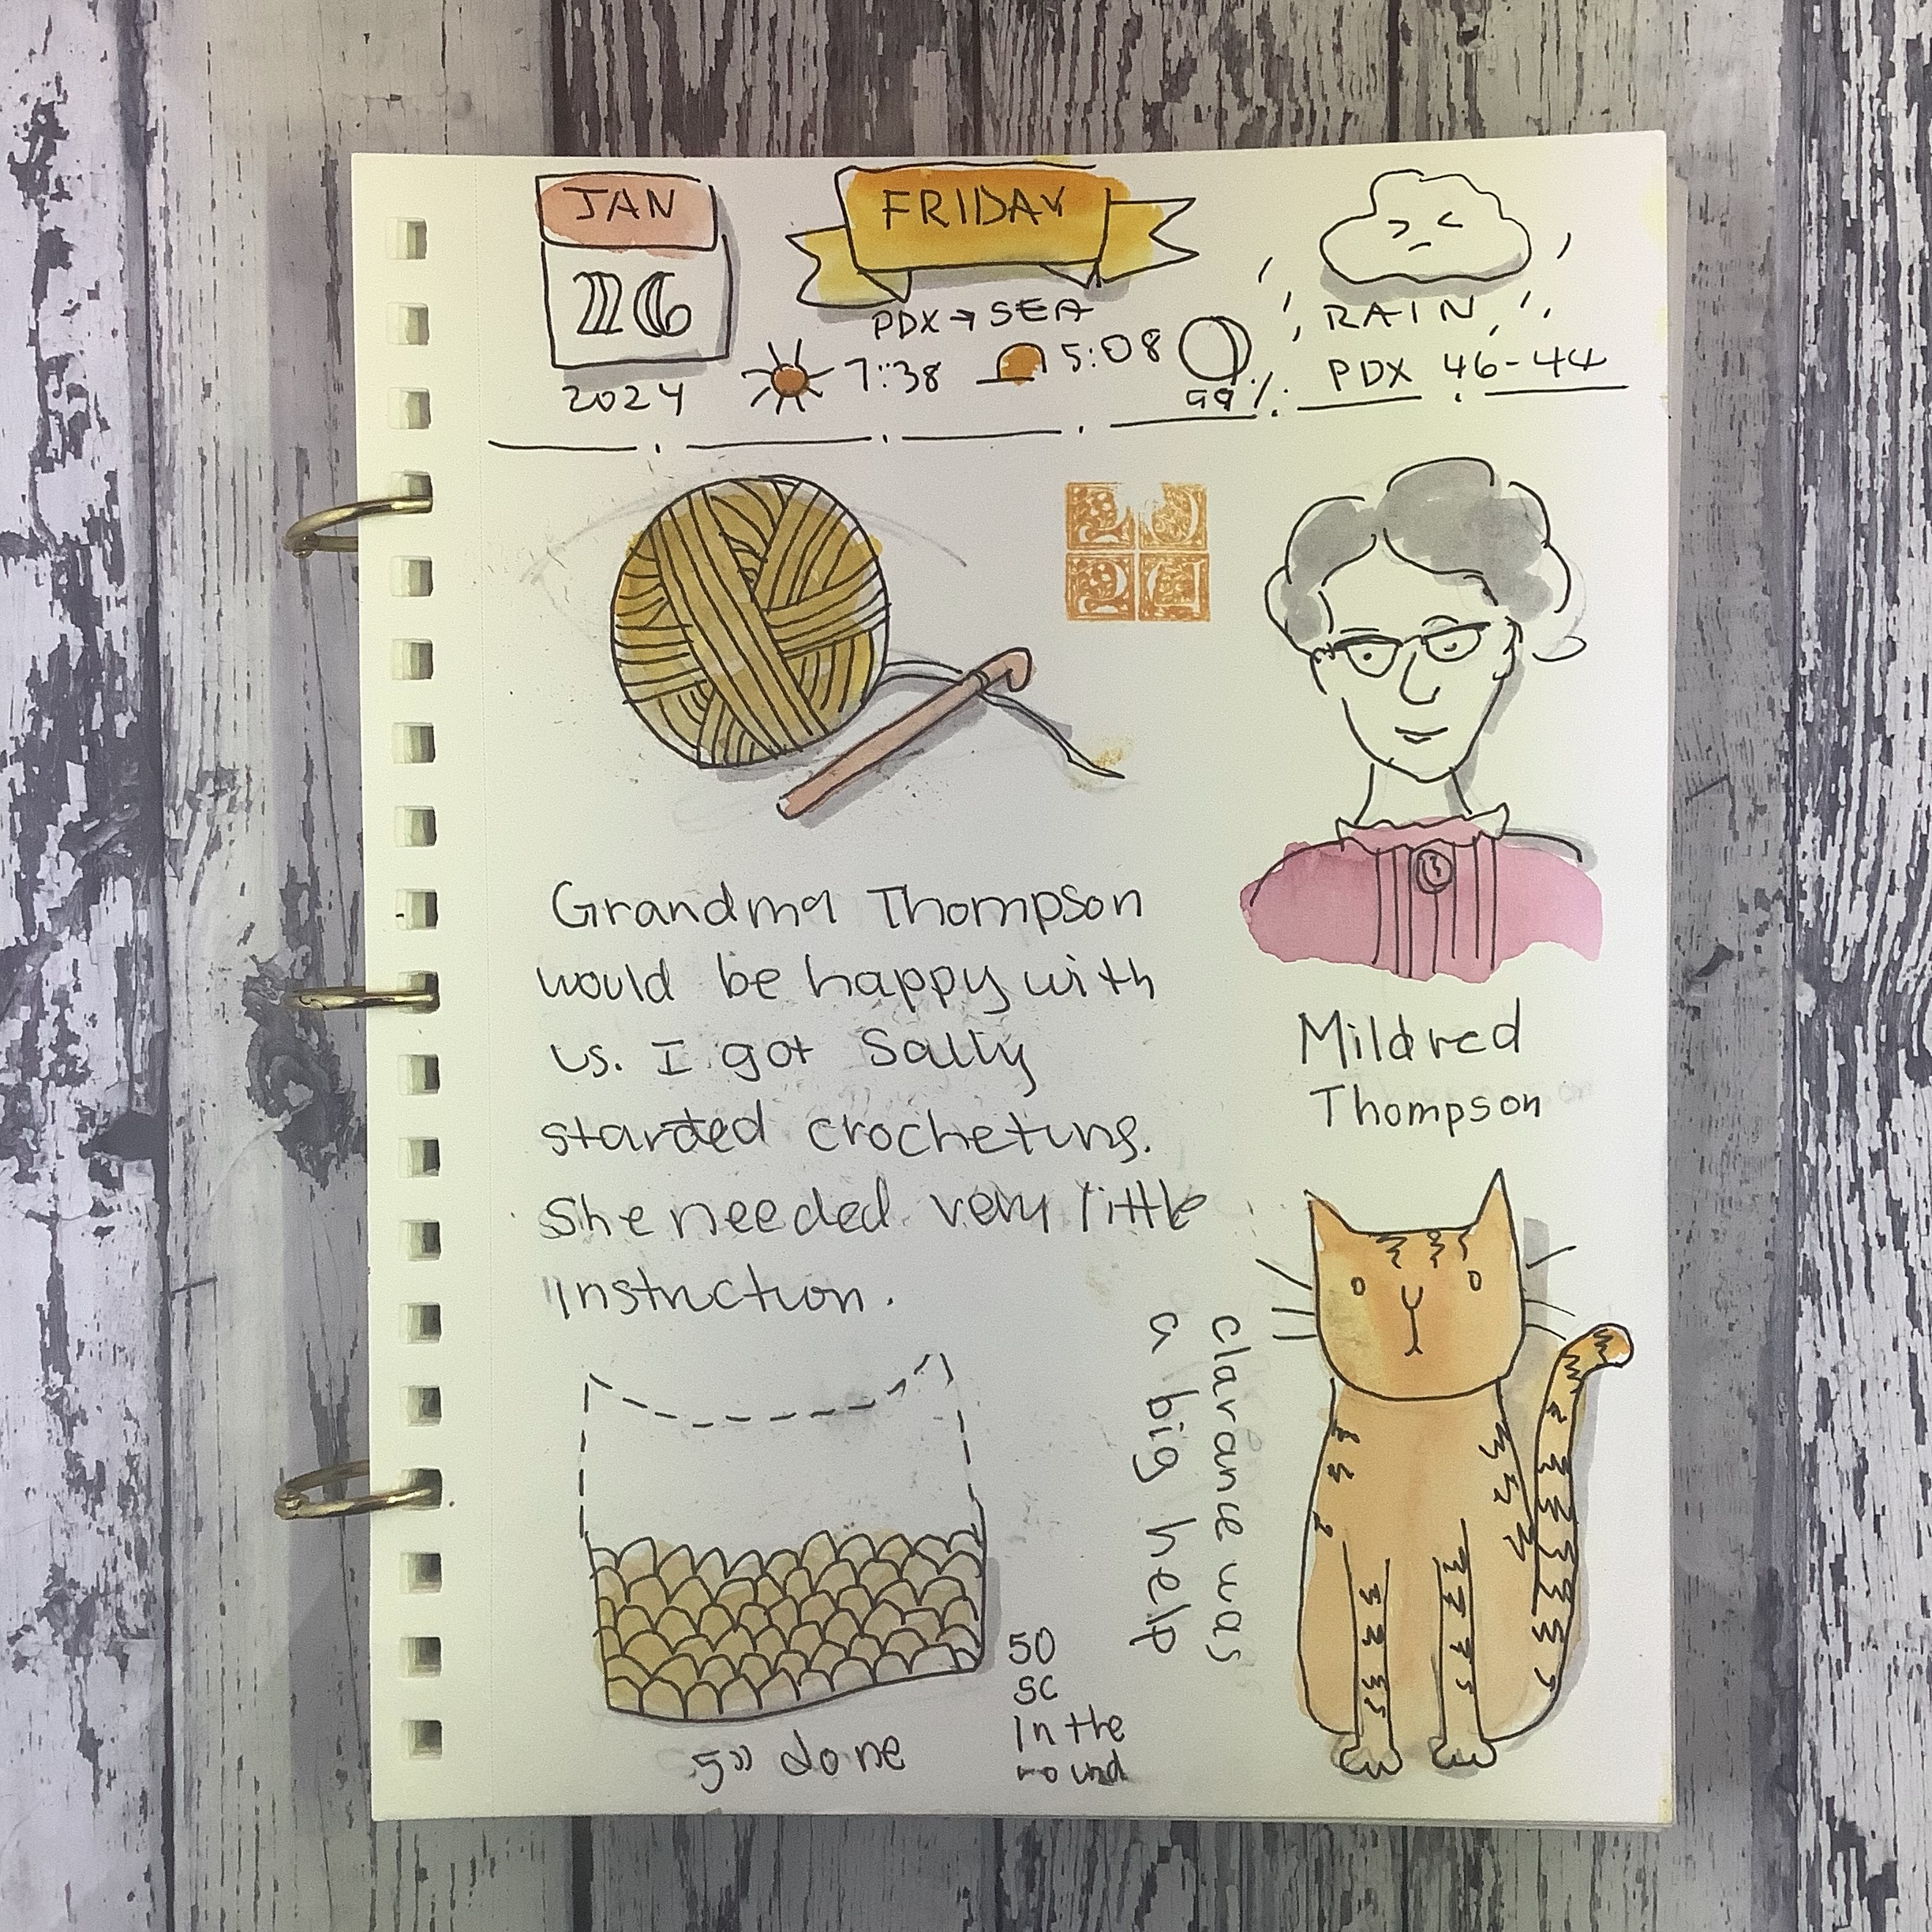 JAN
26
2024
FRIDAY
PDX → SEA
7:38
5:08
99%
RAIN
PDX 46-44
2024
Grandma Thompson
would be happy with
us. I got Sally
started crocheting.
She needed very little
instruction.
Mildred
Thompson
clarance was
a big help
50
sc
in the
round
5" done